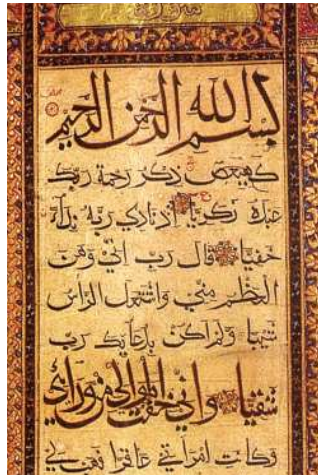 بسم الله الرحمن الرحيم
كهيعص ذكر رحمة ربك
عبده زكريا إذ نادى ربه نداء
خفيا قال رب اني وهن
العظم مني واشتعل الراس
شيبا ولم اكن بدعائك رب
شقيا واني خفت الموالي من وراءي
وكانت امراتي عاقرا فهب لي